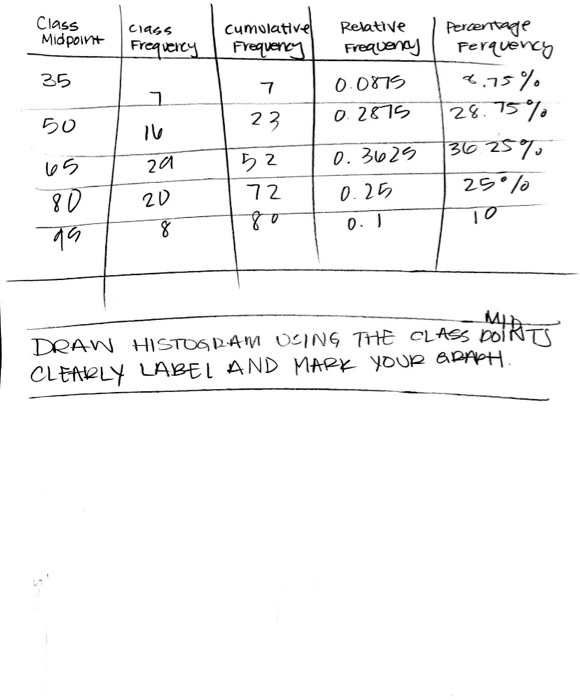 Class Midpoint | Class Frequency | Cumulative Frequency | Relative Frequency | Percentage Ferquency
35 | 7 | 7 | 0.0875 | 8.75%
50 | 16 | 23 | 0.2875 | 28.75%
65 | 29 | 52 | 0.3625 | 36 25%
80 | 20 | 72 | 0.25 | 25%
95 | 8 | 80 | 0.1 | 10
DRAW HISTOGRAM USING THE CLASS MID POINTS
CLEARLY LABEL AND MARK YOUR GRAPH.